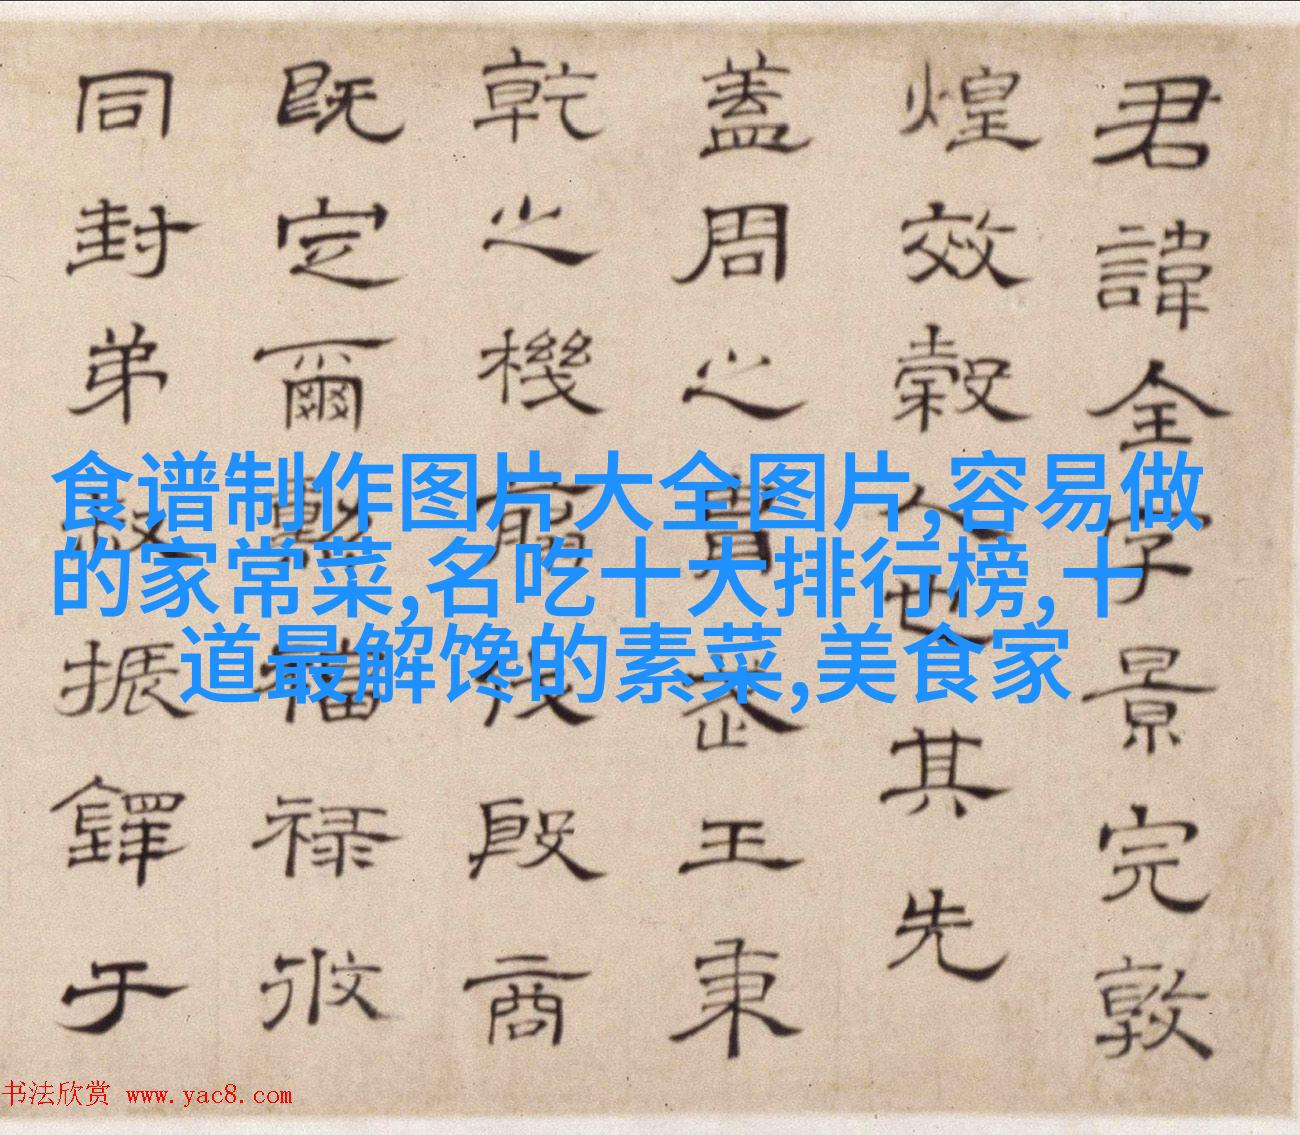 君諱全字景完敦
煌效穀人也其先
蓋周之胄武王秉
乾之機翦伐殷商
既定爾勲福祿攸
同封弟叔振鐸于
食谱制作图片大全图片,容易做
的家常菜,名吃十大排行榜,十
道最解馋的素菜,美食家
书法欣赏 www.yac8.com